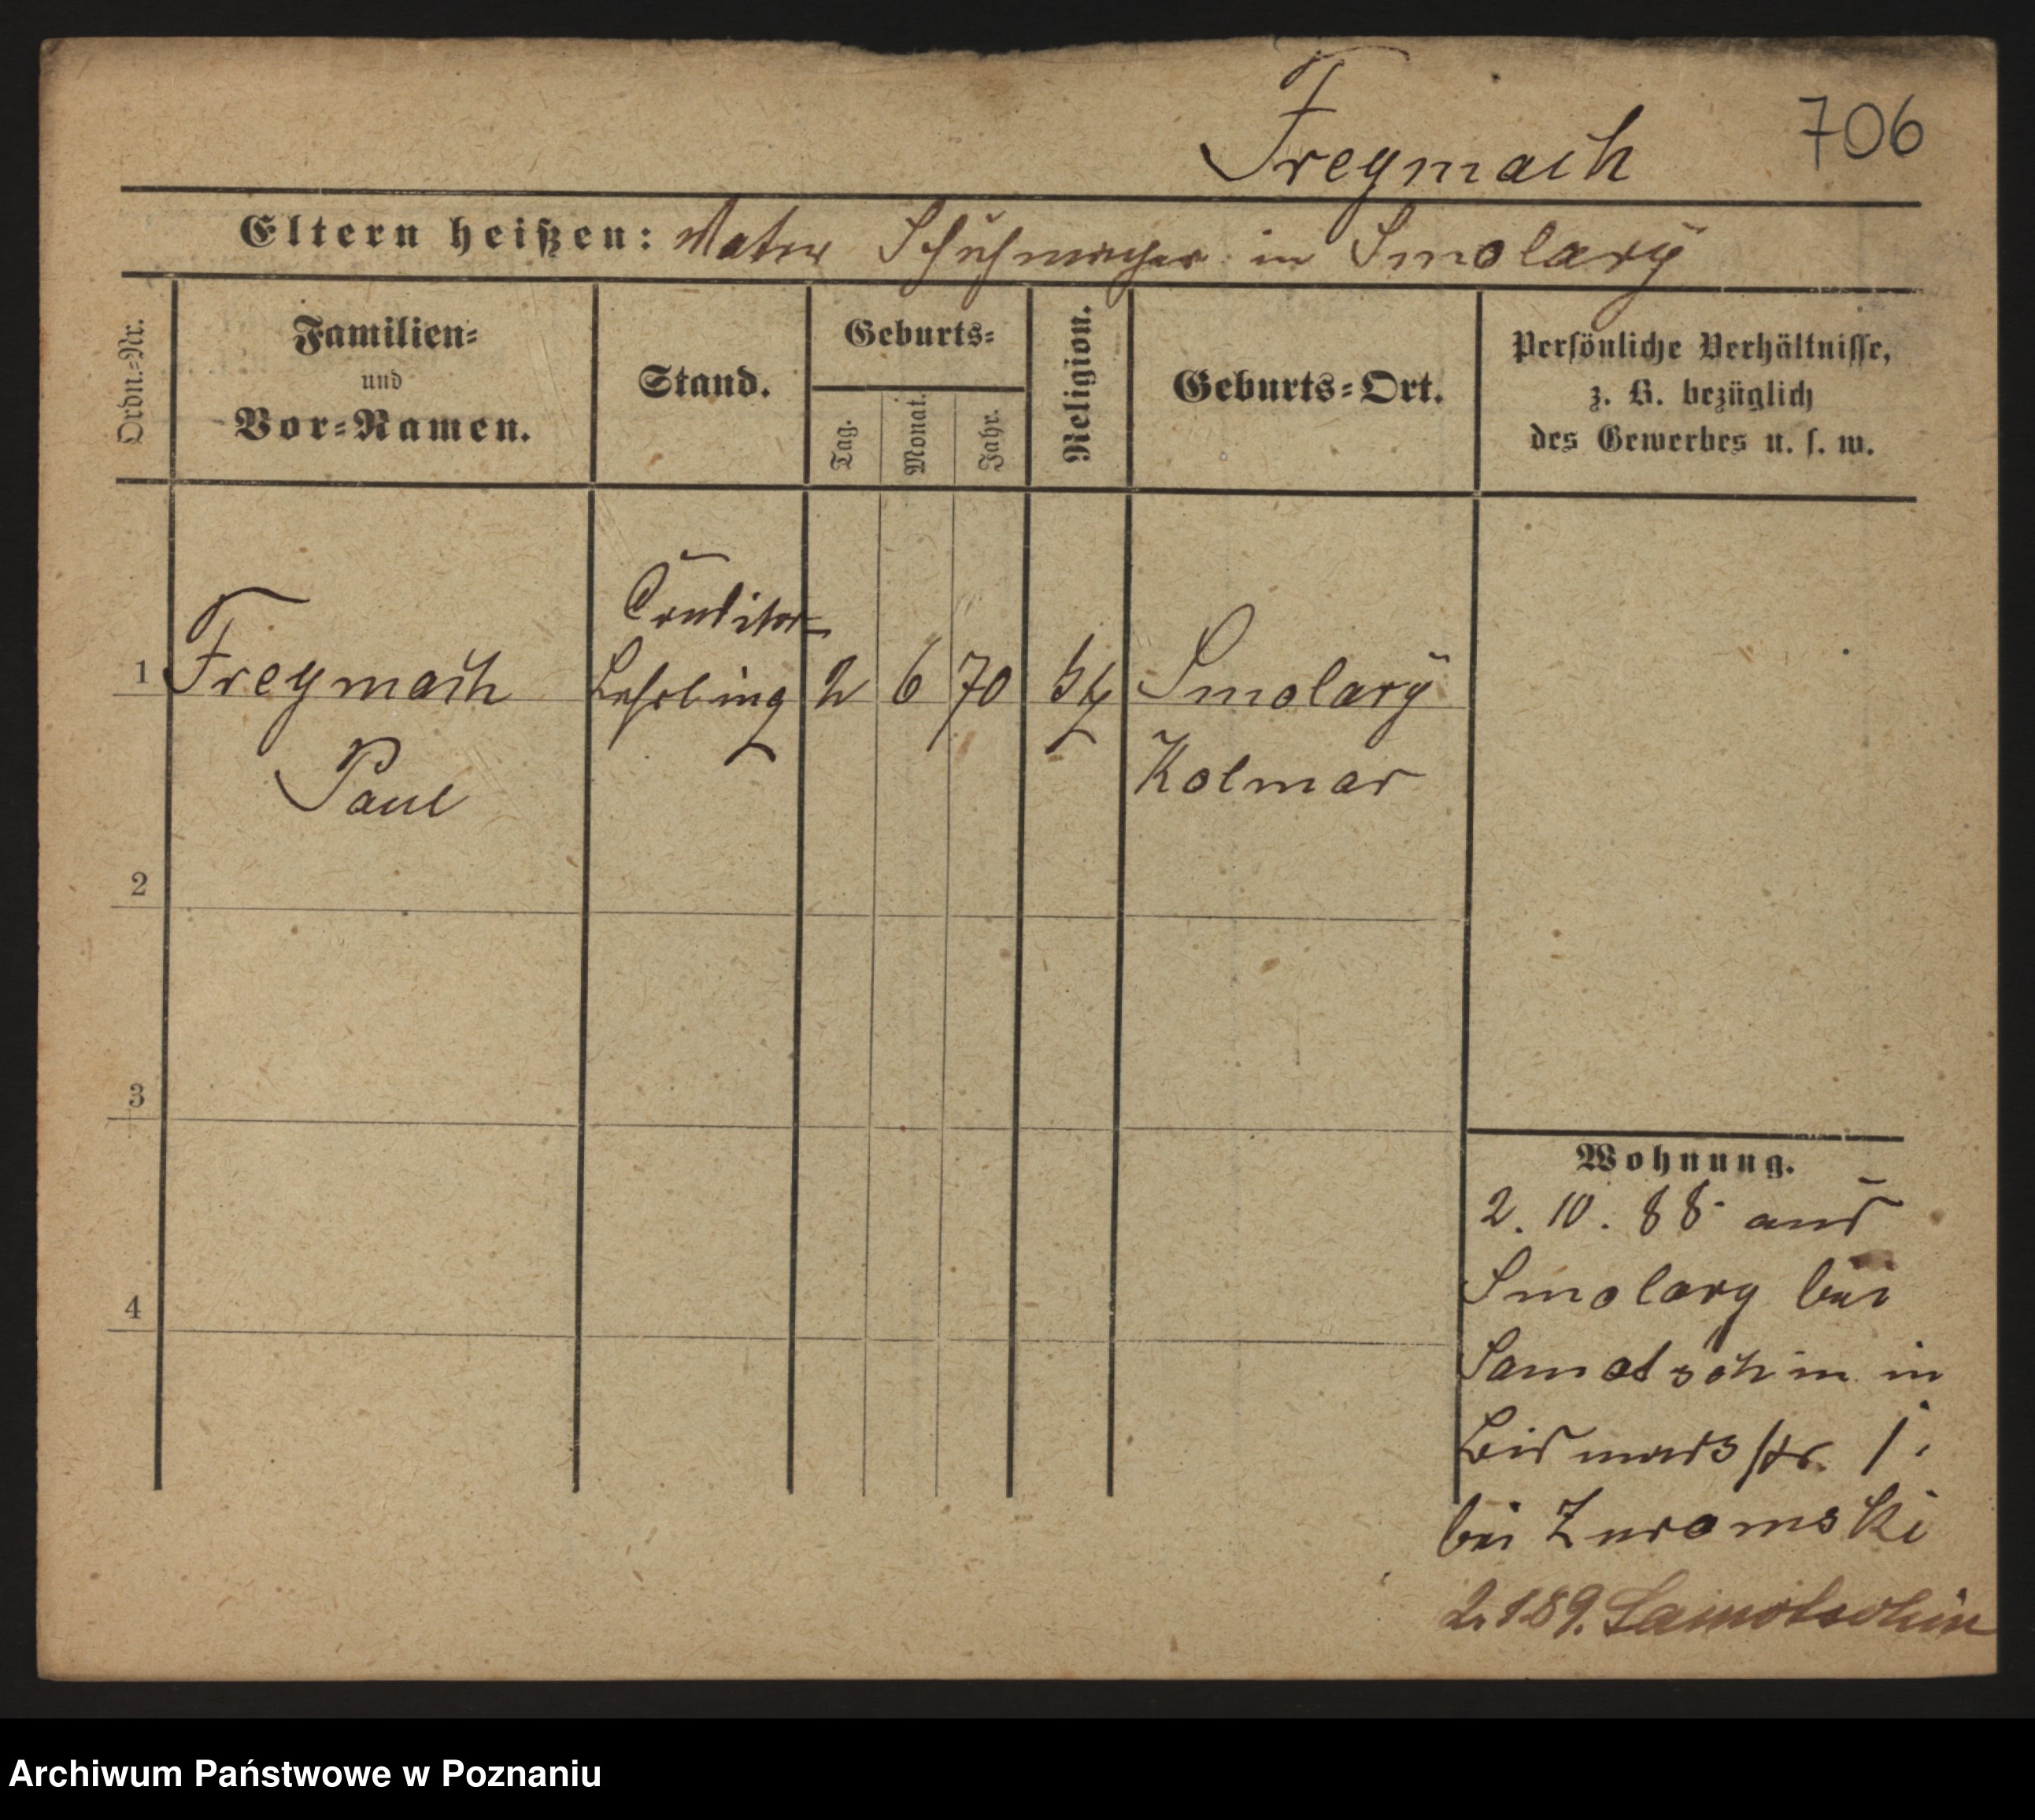 Freymark
706
Eltern heißen: Vater Schuhmacher in Smolary
Ordn.-Nr.
Familien-
und
Vor-Namen.
Stand.
Geburts-
Tag.
Monat.
Jahr.
Religion.
Geburts-Ort.
Persönliche Verhältnisse,
z. B. bezüglich
des Gewerbes u. s. w.
Conditor-
1 Freymark Lehrling 2 6 70 Smolary
Paul Kolmar
2
3
4
Wohnung.
2. 10. 88 aus
Smolary bei
Samotschin in
Bismarckstr. 1.
bei Zuromski
2.1 89. Samotschin
Archiwum Państwowe w Poznaniu